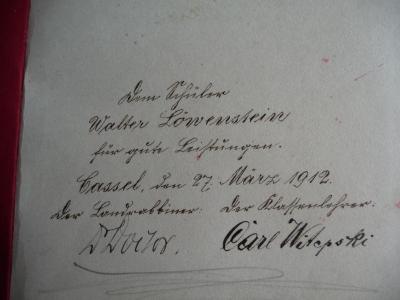 Dem Schüler
Walter Löwenstein
für gute Leistungen.
Cassel, den 27. März 1912.
Der Landrabbiner: Der Klassenlehrer:
Dr Doctor. Carl Witepski